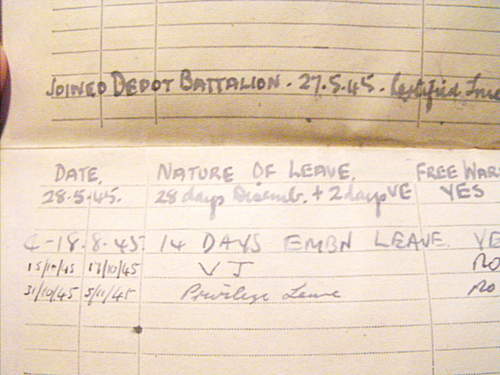 JOINED DEPOT BATTALION. 27.5.45. Certified True
DATE. NATURE OF LEAVE. FREE WAR
28.5.45. 28 days Disemb. + 2 days VE YES
4-18.8.45. 14 DAYS EMBN LEAVE. YE
15/10/45 17/10/45 VJ NO
31/10/45 5/11/45 Privilege Leave NO